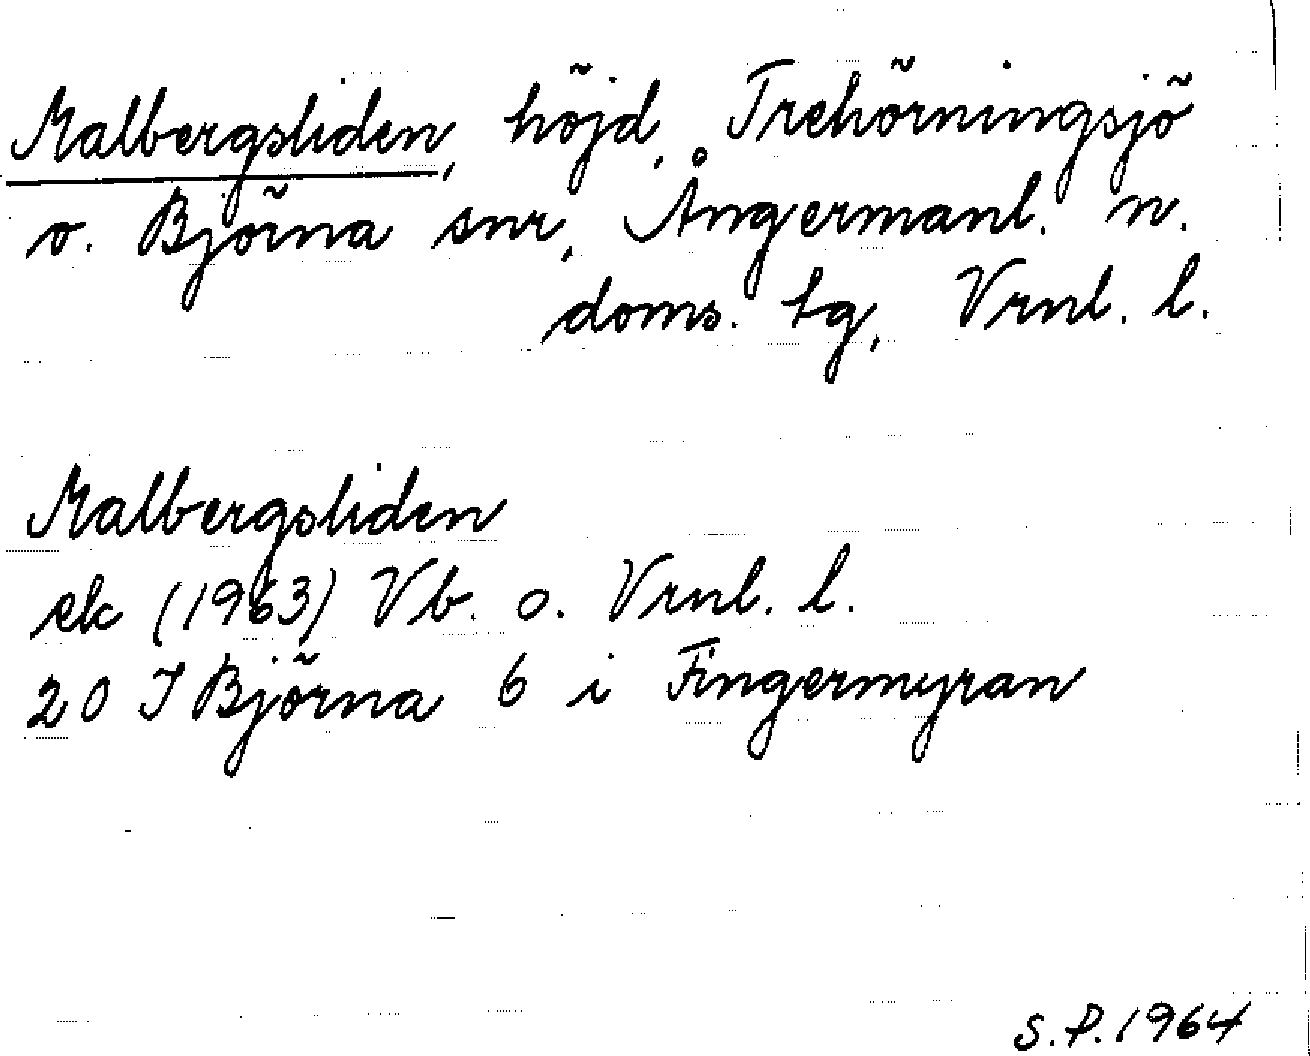 Malbergsliden, höjd, Trehörningsjö
o. Björna snr, Ångermanl. n.
doms. tg, Vrnl. l.
Malbergsliden
ek (1963) Vb. o. Vrnl. l.
20 J Björna 6 i Fingermyran
S.P. 1964